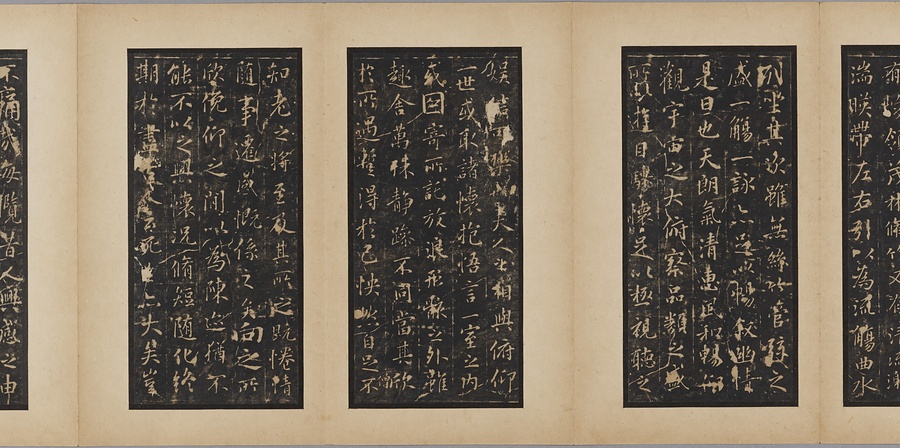 有峻領茂林脩竹又有清流激
湍暎帶左右引以為流觴曲水
列坐其次雖無絲竹管絃之
盛一觴一詠亦足以暢敘幽情
是日也天朗氣清惠風和暢仰
觀宇宙之大俯察品類之盛
所以遊目騁懷足以極視聽之
娛信可樂也夫人之相與俯仰
一世或取諸懷抱悟言一室之內
或因寄所託放浪形骸之外雖
趣舍萬殊靜躁不同當其欣
於所遇蹔得於己怏然自足不
知老之將至及其所之既惓情
隨事遷感慨係之矣向之所
欣俛仰之閒以為陳迹猶不
能不以之興懷況脩短隨化終
期於盡古人云死生亦大矣豈
不痛哉每攬昔人興感之由